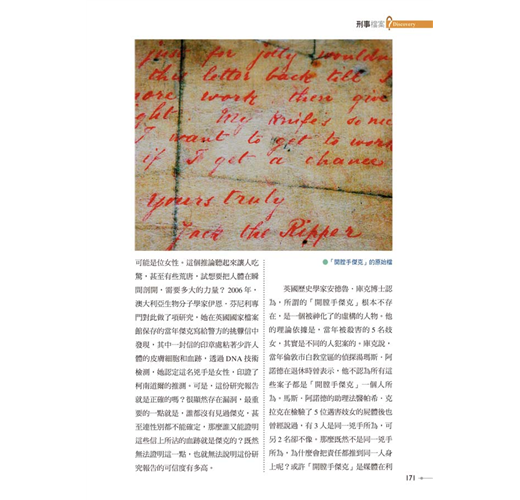 刑事檔案 Discovery
just for jolly wouldn
this letter back till I
more work then give
ght My knife's so nice
I want to get to work
if I get a chance
Yours truly
Jack the Ripper
●「開膛手傑克」的原始檔
可能是位女性。這個推論聽起來讓人吃
驚,甚至有些荒唐,試想要把人體在瞬
間剖開,需要多大的力量? 2006 年,
澳大利亞生物分子學家伊恩.芬尼利專
門對此做了項研究,她在英國國家檔案
館保存的當年傑克寫給警方的挑釁信中
發現,其中一封信的印章處粘著少許人
體的皮膚細胞和血跡,透過 DNA 技術
檢測,她認定這名兇手是女性,印證了
柯南道爾的推測。可是,這份研究報告
就是正確的嗎?很顯然存在漏洞,最重
要的一點就是,誰都沒有見過傑克,甚
至連性別都不能確定,那麼誰又能證明
這些信上所沾的血跡就是傑克的?既然
無法證明這一點,也就無法說明這份研
究報告的可信度有多高。
英國歷史學家安德魯.庫克博士認
為,所謂的「開膛手傑克」根本不存
在,是一個被神化了的虛構的人物。他
的理論依據是,當年被殺害的 5 名妓
女,其實是不同的人犯案的。庫克說,
當年倫敦市白教堂區的偵探湯瑪斯.阿
諾德在退休時曾表示,他不認為所有這
些案子都是「開膛手傑克」一個人所
為。馬斯.阿諾德的助理法醫帕希.克
拉克在檢驗了 5 位遇害妓女的屍體後也
曾經說過,有 3 人是同一兇手所為,可
另 2 名卻不像。那麼既然不是同一兇手
所為,為什麼會把責任都推到同一人身
上呢?或許「開膛手傑克」是媒體在利
171